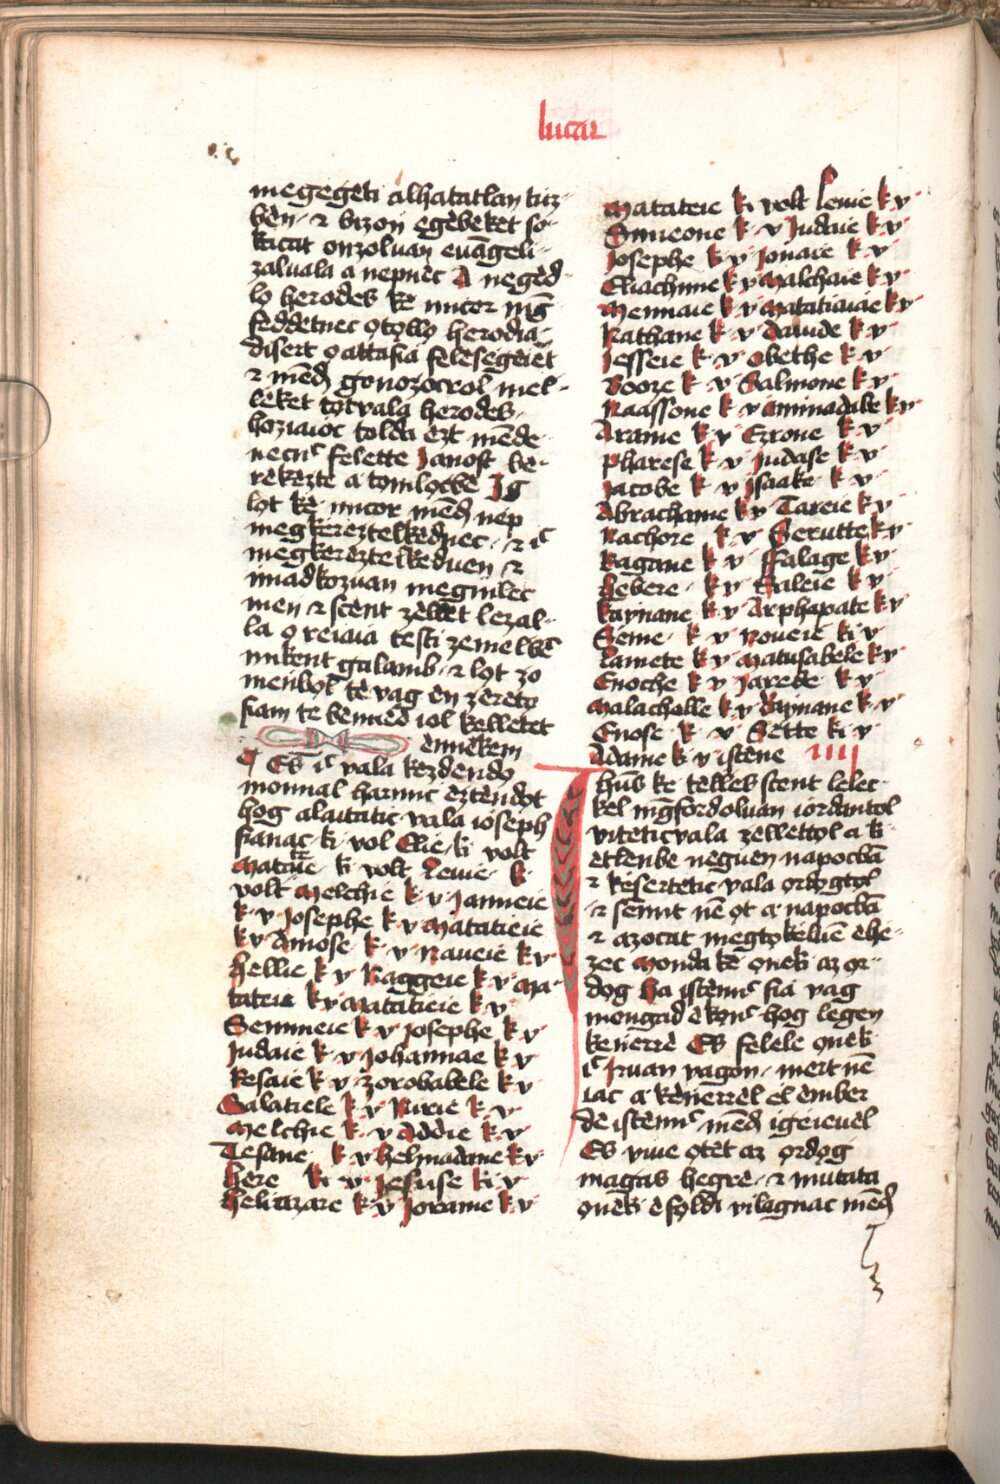 lucac
megegeti alhatatlan tuz
bèn · ⁊ bizon egèbeket so
kacat onzoluan euāgeli
zaluala a nepnèc A neged
lo herodes kè micor mḡ
feddetnec otollo herodia
disert o attafia felesegeiet
⁊ mēd gonozocrol mel
leket totvala herodes
hoziaioc tolda èzt mēde
necn felette Janost be
rekezte a tomlocbè
lot kè micor mēd nep
megkereztelkednec · ⁊ ic
megkereztelkeduen ⁊
imadkozuan meguilec
men ⁊ scent zèllèt lezal
la o reiaia testi zemelbè
mikent galamb · ⁊ lot zo
menbol tè vag en zereto
fiam te benned iol kelletet
ènnekem
Es ic vala kezdendo
monnal harmic èztèndot
hog alaitatic vala ioseph
fianac · ki vol Elie · ki volt
Matate · ki volt Leuie · k
volt Melchie k v Janneie
k v Josephe k v Matatieie
k v Amose k v Naueie k v
Hellie k v Naggeie k v Ma
tateie k v Matatieie k v
Semmeie k v Josephe k v
Judaie k v Johannae k v
Resaie k v zorobabele k v
Salatiele k v Nirie k v
Melchie k v Addie k v
Tesane k v helmadane k v
here ki v Jesuse ki v
heliazare k v Jorame k v
Matateie ki volt Leuie k v
Simeone k v Judaie k v
Josephe k v Jonaie k v
Eliachime k v Malchaie k v
Mennaie k v Matatiaiae k v
Nathane k v Dauide k v
Jesseie k v Obethe k v
Booze k v Salmone k v
Naassone k v Aminadabe k v
Arame k v Ezrone k v
Pharese k v Judase k v
Jacobe k v Isaake k v
Abrachame k v Tareie k v
Nachore k v Serutte k v
Ragane k v Falage k v
Hebere k v Saleie k v
Kaynane k v Arphapate k v
Seme k v Noueie ki v
Lamete k v Matusabele k v
Enoche k v Jarede k v
Malachelle k v Caynane k v
Enose k v Sette ki v
Adame k v istene IIII
Jhus ke tèlles scent lelec
kel mḡfordoluan iordantol
viteticvala zellettol a k
etlenbe neguen napocbā
⁊ kesertetic vala ordogtol
⁊ sèmit nē ot a napocbā
⁊ azocat megtokeluē ehe
zec Monda kè onèki az or
dog Ha istènn fia vag
mongad è kon hog legen
kènerrè Es felele onèki
ic Jruan vagon · mert nē
lac a kènèrrèl èl èmber
dè istènn mēd igeieuel
Es viue otèt az ordog
magas hegrè · ⁊ mutata
onèki è foldi vilagnac mēd